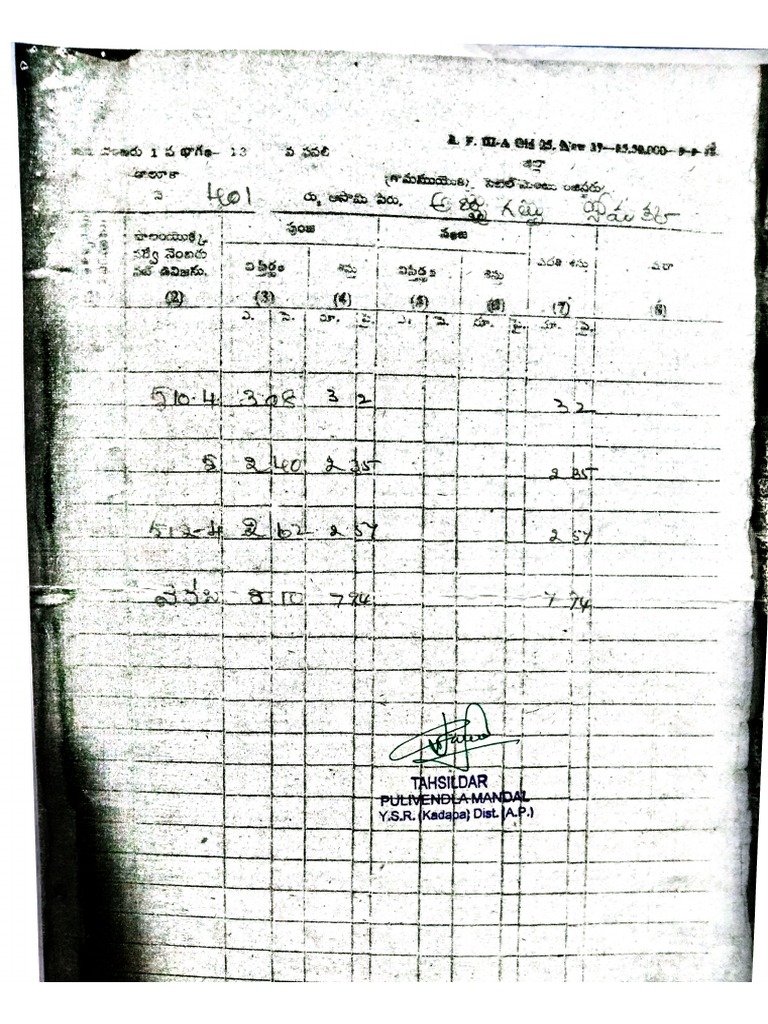 నెంబరు 1 ప భాగం- 13 వ పసలీ
R. F. III-A Old 25. New 37-
జిల్లా
తాలూకా
(గ్రామముయొక్క) సెటిల్‌మెంటు రిజిస్టరు
నె 401 ర్కు ఆసామి పేరు.
పొలంయొక్క సర్వే నెంబరు సబ్ డివిజను. పుంజ నంజ
విస్తీర్ణం శిస్తు విస్తీర్ణం శిస్తు
(2) (3) (4) (5) (6) (7) (8)
ఎ. సె. రూ. పై. ఎ. సె. రూ. పై. రూ. పై.
510-4 3 08 3 2 3 2
5 2 40 2 35 2 35
512-4 2 62 2 57 2 57
8 10 7 94 7 94
TAHSILDAR
PULIVENDLA MANDAL
Y.S.R. (Kadapa) Dist. (A.P.)